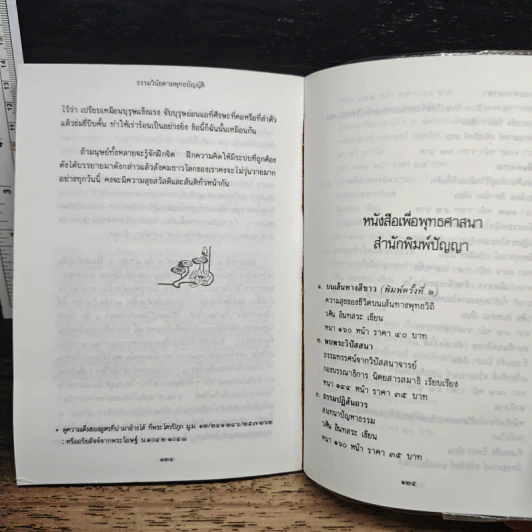 ธรรมวินัยตามพุทธบัญญัติ
ไว้ว่า เปรียบเหมือนบุรุษแข็งแรง จับบุรุษอ่อนแอที่ศีรษะที่คอหรือที่ลำตัว
แล้วข่มขี่บีบคั้น ทำให้เร่าร้อนเป็นอย่างยิ่ง ข้อนี้ก็ฉันนั้นเหมือนกัน
ถ้ามนุษย์ทั้งหลายจะรู้จักฝึกจิต ฝึกความคิดให้มีระบบที่ถูกต้อง
ดังได้บรรยายมาดังกล่าวแล้วสังคมชาวโลกของเราคงจะไม่วุ่นวายมาก
อย่างทุกวันนี้ คงจะมีความสุขสวัสดีและสันติทั่วหน้ากัน
* ดูความเต็มของสูตรที่นำมาอ้างได้ ที่พระไตรปิฎก มู.ม. ๑๒/๒๔๑-๒๔๖/๒๕๗-๒๖๒
; หรืออริยสัจจ์จากพระโอษฐ์ น.๑๐๔๒-๑๐๔๘
๑๒๔
หนังสือเพื่อพุทธศาสนา
สำนักพิมพ์ปัญญา
๑. บนเส้นทางสีขาว (พิมพ์ครั้งที่ ๒)
ความสุขของชีวิตบนเส้นทางพุทธวิถี
วศิน อินทสระ เขียน
หนา ๑๖๐ หน้า ราคา ๔๐ บาท
๒. พบพระวิปัสสนา
ธรรมทรรศน์จากวิปัสสนาจารย์
กองบรรณาธิการ นิตยสารสมาธิ เรียบเรียง
หนา ๑๔๔ หน้า ราคา ๓๕ บาท
๓. ธรรมปฏิสันถาร
สนทนาปัญหาธรรม
วศิน อินทสระ เขียน
หนา ๑๖๐ หน้า ราคา ๓๕ บาท
๑๒๕